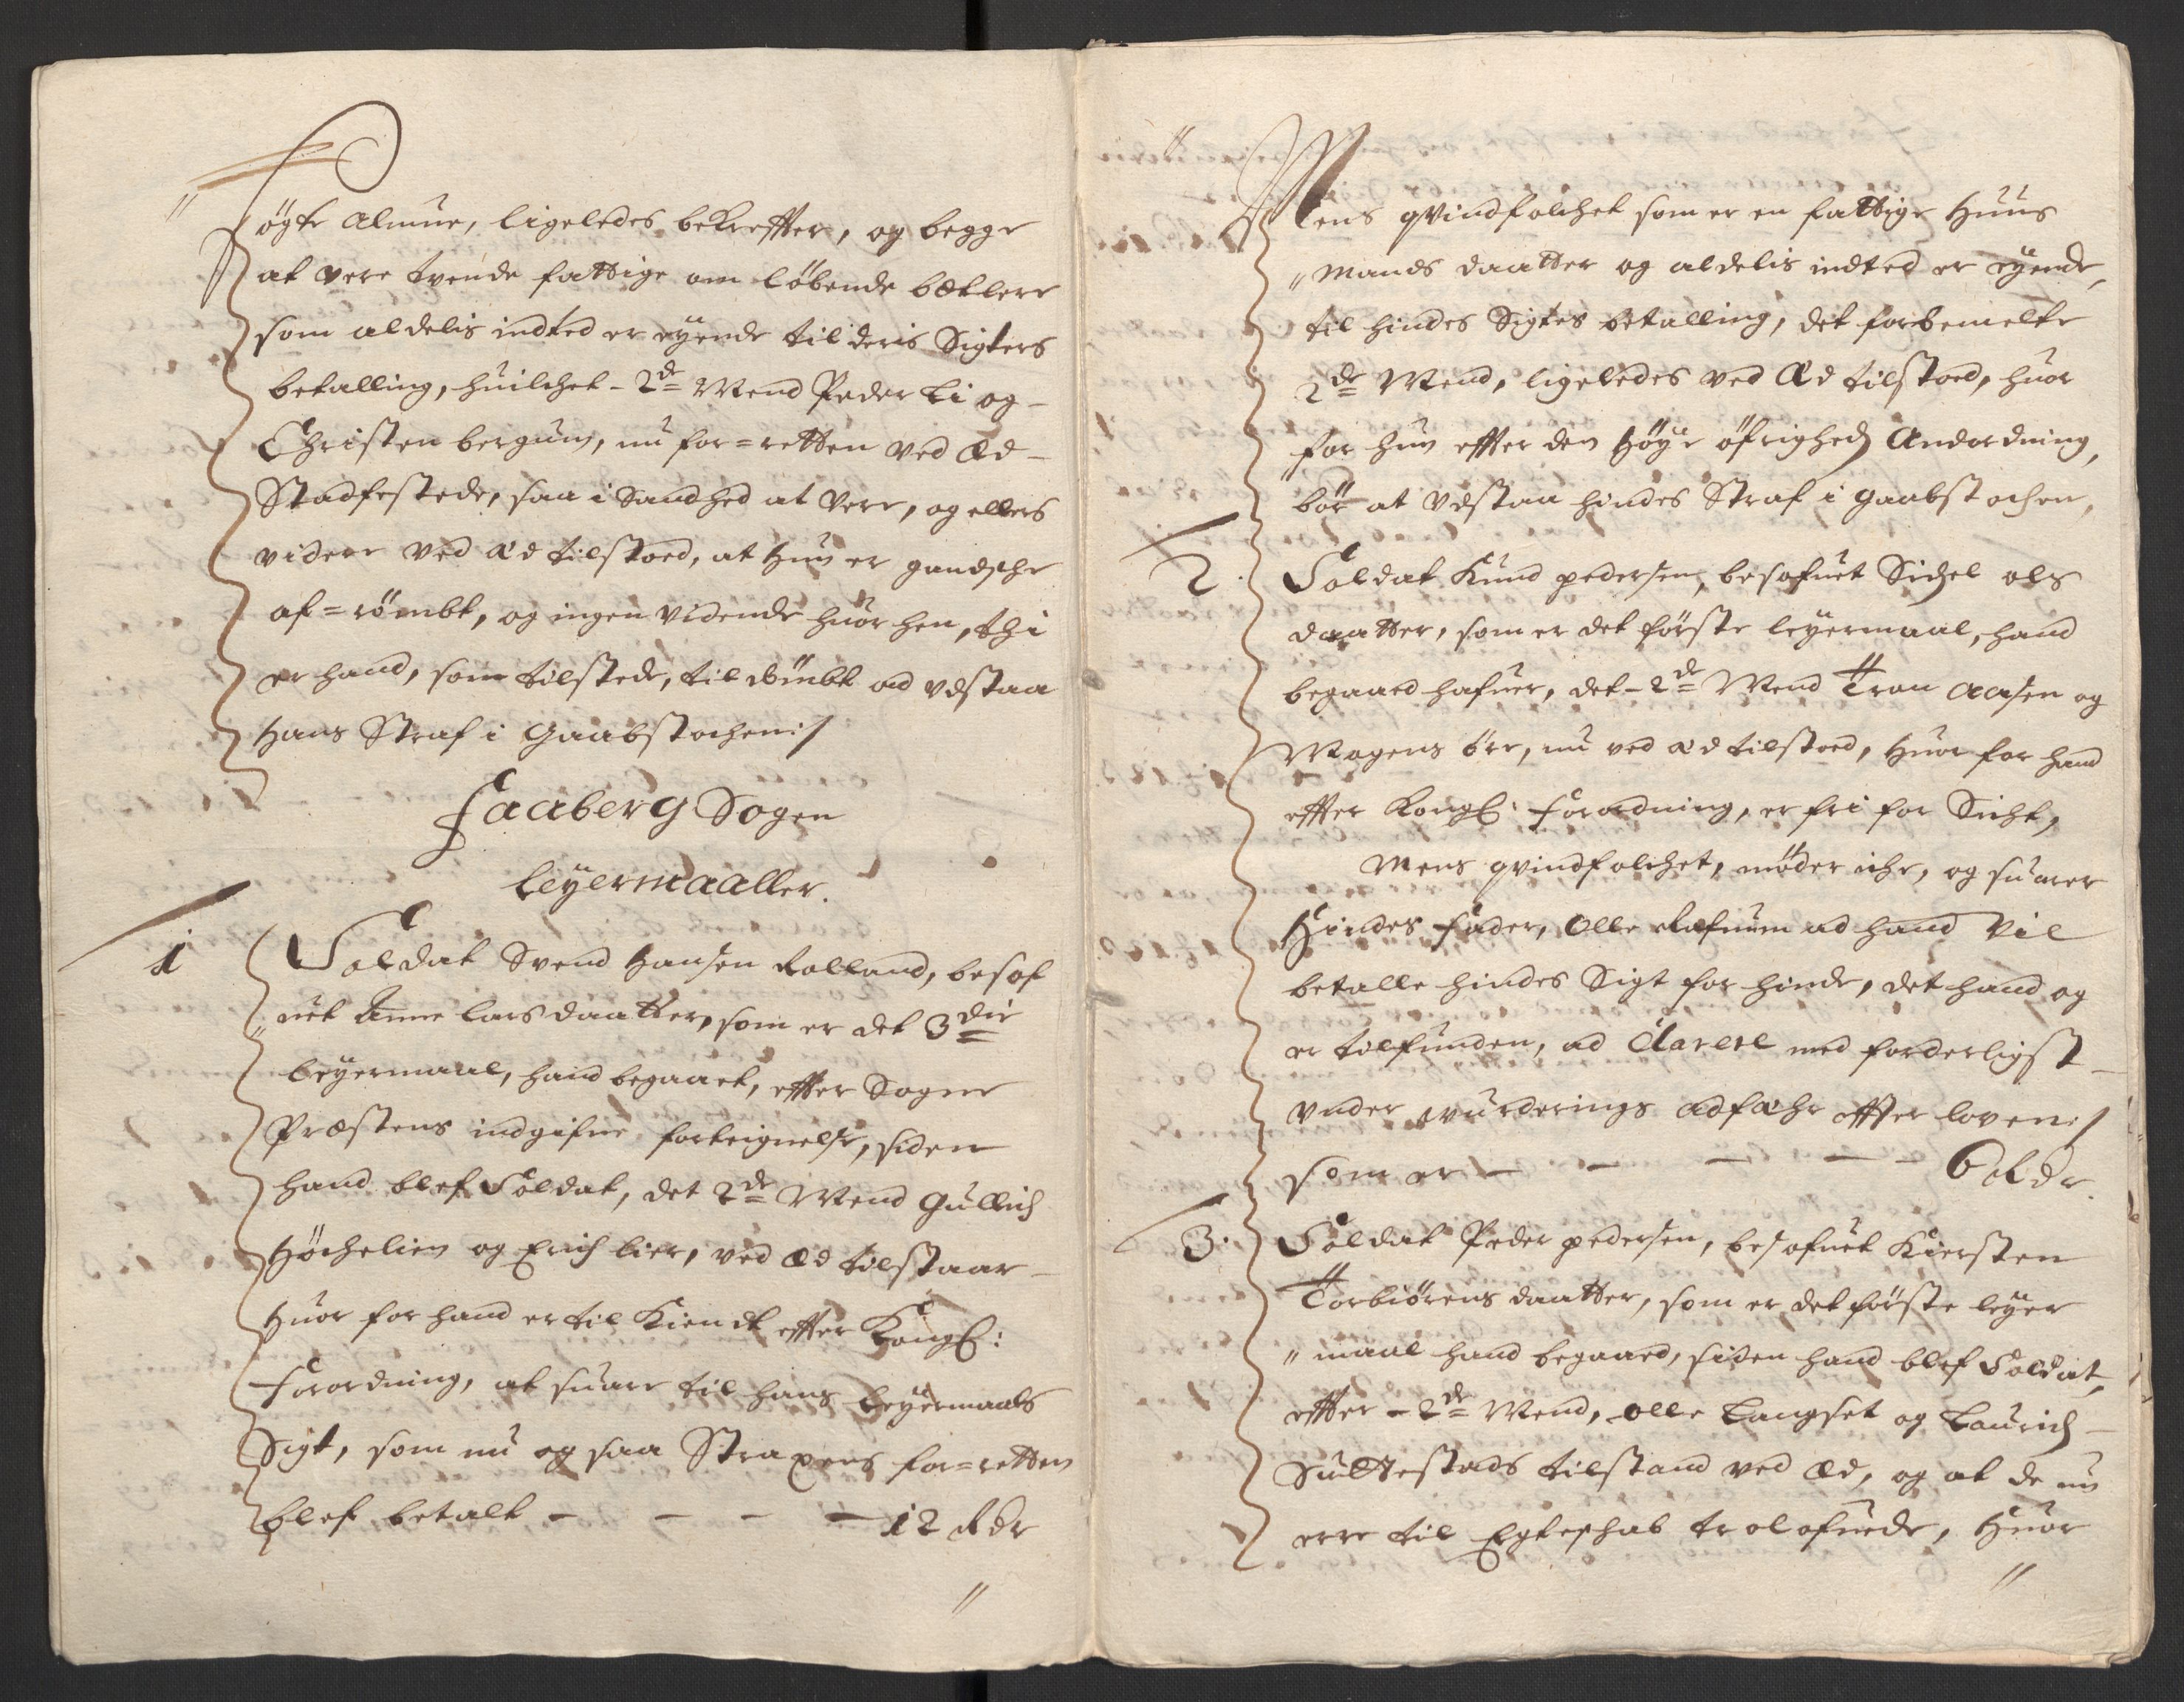 "
søgte Almue, ligeledes bekreffter, og begge
at vere tvende fattige om løbende bettlere
som aldelis indted er eyende til deris Sigters
betalling, huilchet - 2de Mend Peder Li og -
Christen bergum, nu for=retten ved Æd -
Stadfestede, saa i Sandhed at vere, og ellers
videre ved æd tilstoed, at hun er gandsche
af=römbt, og ingen vidende huor hen, thi
er hand, som tilstede, tildömbt ad udstaa
hans Straf i Gaabstochen:/
Faaberg Sogen
Leyermaaller.
1 Soldat Svend Hansen Rolland, besof
"uet Anne Larsdaatter, som er det 3die
Leyermaal, hand begaaet, effter Sogne
Præstens indgifne forteignelse, siden
hand blef Soldat, det 2de Mend Gullich
Høchelien og Erich lier, ved æd tilstaar -
Huor for hand er til Kiendt effter Kongl:
Forordning, at suare til hans Leyermaals
Sigt, som nu og saa Straxens for=retten
blef betalt - - - - 12 Rdr
"
"
Mens qvindfolchet som er en fattige Huus
"Mands daatter og aldelis indted er eyende,
til hindes Sigtes betalling, det forbemelte
2de Mend, ligeledes ved Æd tilstoed, huor
for hun effter den høye öfrigheds Anordning,
bør at udstaa hindes Straf i gaabstochen,
2. Soldat Knud pedersen, besofuet Sidzel ols
daatter, som er det första leyermaal, hand
begaaed hafuer, det - 2de Mend Tron Aasen og
Mogens öre, nu ved æd tilstoed, huor for hand
effter Kongl: Forordning, er fri for Sicht,
Mens qvindfolchet, møder iche, og suarer
Hindes fader, Olle Rafnum ad hand vil
betalle hindes Sigt for hinde, det hand og
er tilfunden, ad Clarere med forderligst -
under vurderings adfæhr effter loven:/
som er - - - - - 6 Rdr.
3. Soldat Peder pedersen, besofuet Kiersten
Torbiörens daatter, som er det förste leyer
"maal hand begaaed, siden hand blef Soldat,
effter - 2de Mend, Olle Langset og Laurids -
Suttestads tilstand ved Æd, og at de nu
erre til Egteschab trolofuede, Huor
"